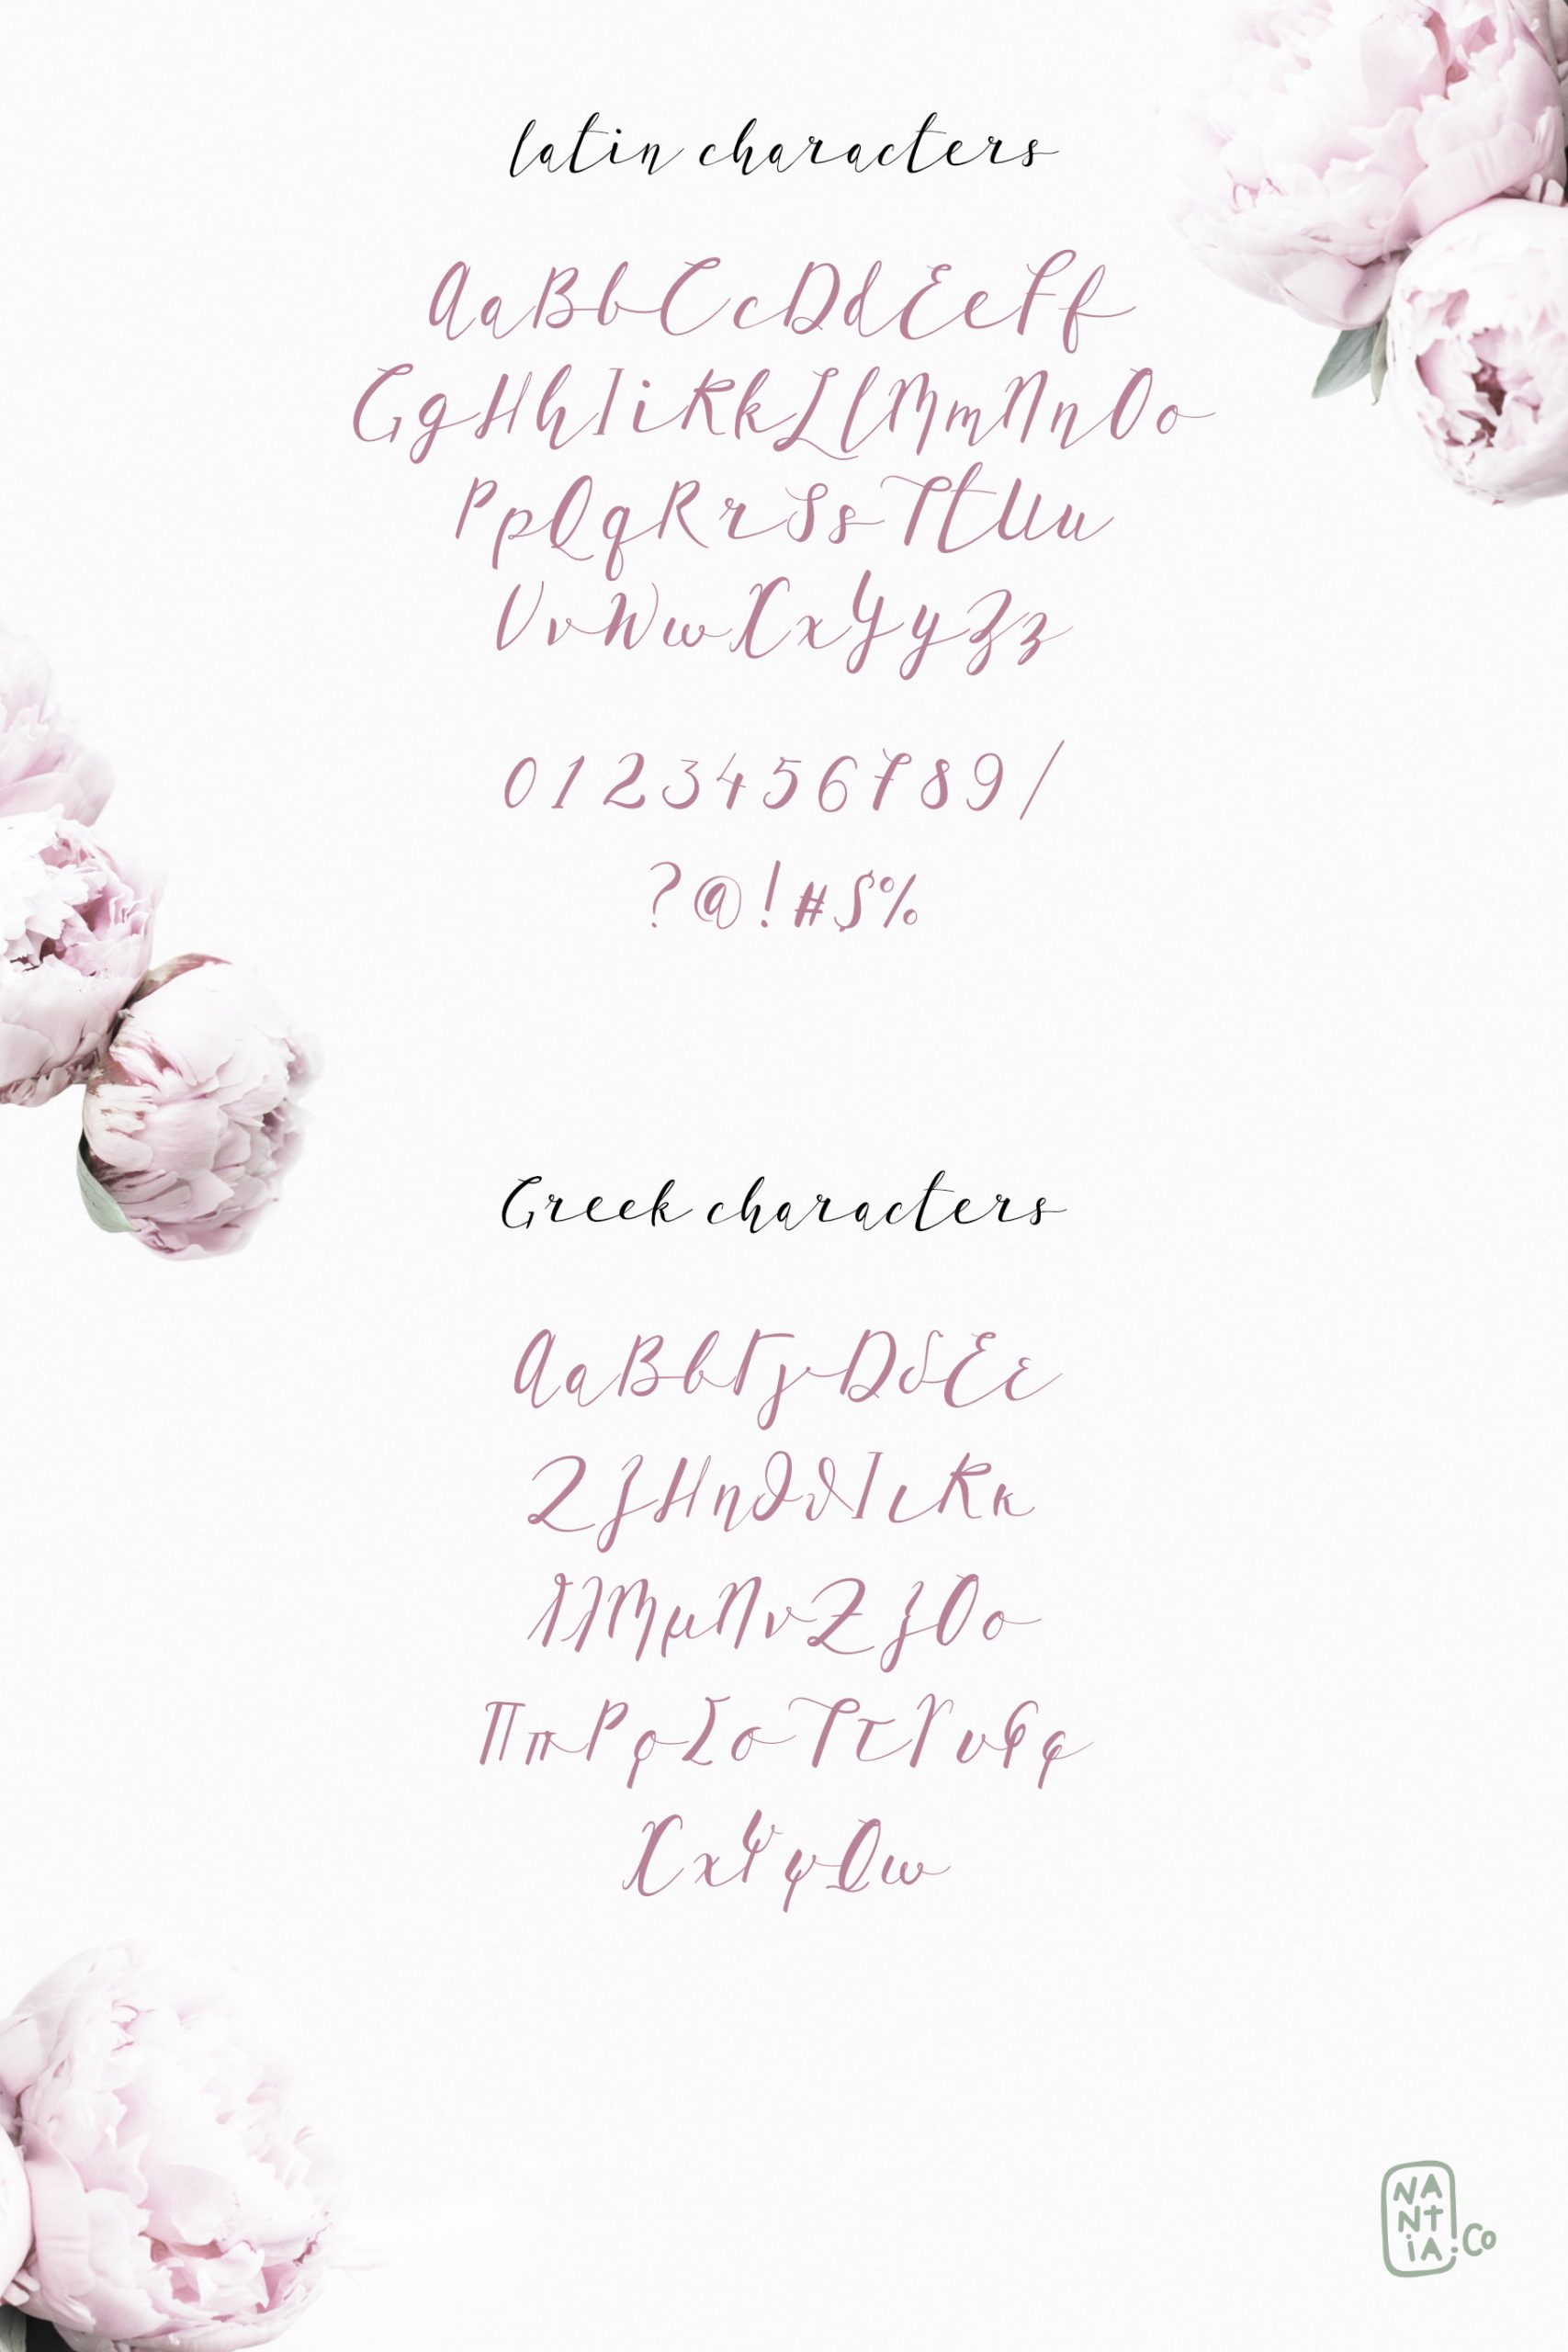 latin characters
AaBbCcDdEeFf
GgHhIiKkLlMmNnOo
PpQqRrSsTtUu
VvWwXxYyZz
0123456789/
?@!#$%
Greek characters
ΑαΒβΓγΔδΕε
ΖζΗηΘθΙιΚκ
ΛλΜμΝνΞξΟο
ΠπΡρΣσΤτΥυΦφ
ΧχΨψΩω
NA
Nt
iA.Co